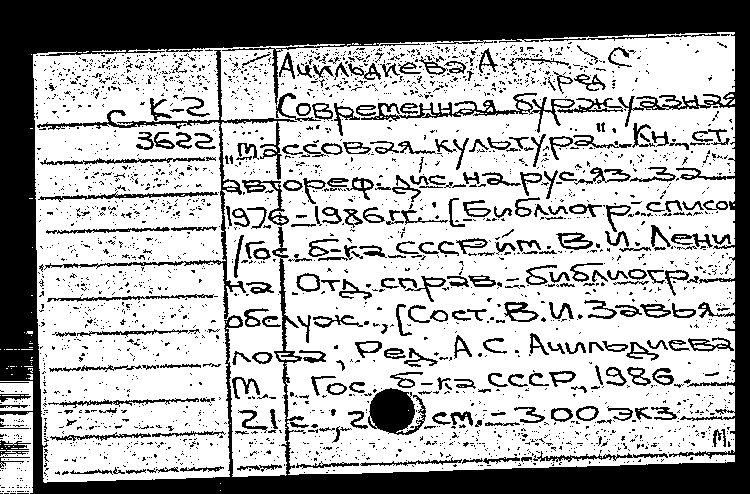 Ачильдиева, А С
ред
С К-2 Современная буржуазная
3622 „массовая культура": Кн., ст.
автореф. дис. на рус. яз. за
1976-1986 гг.: [Библиогр. список
/Гос. б-ка СССР им. В. И. Лени
на. Отд. справ.-библиогр.
обслуж.; [Сост. В. И. Завья-
лова; Ред. А. С. Ачильдиева
М. Гос. б-ка СССР, 1986. -
21 с.; 2 см. - 300 экз
М.